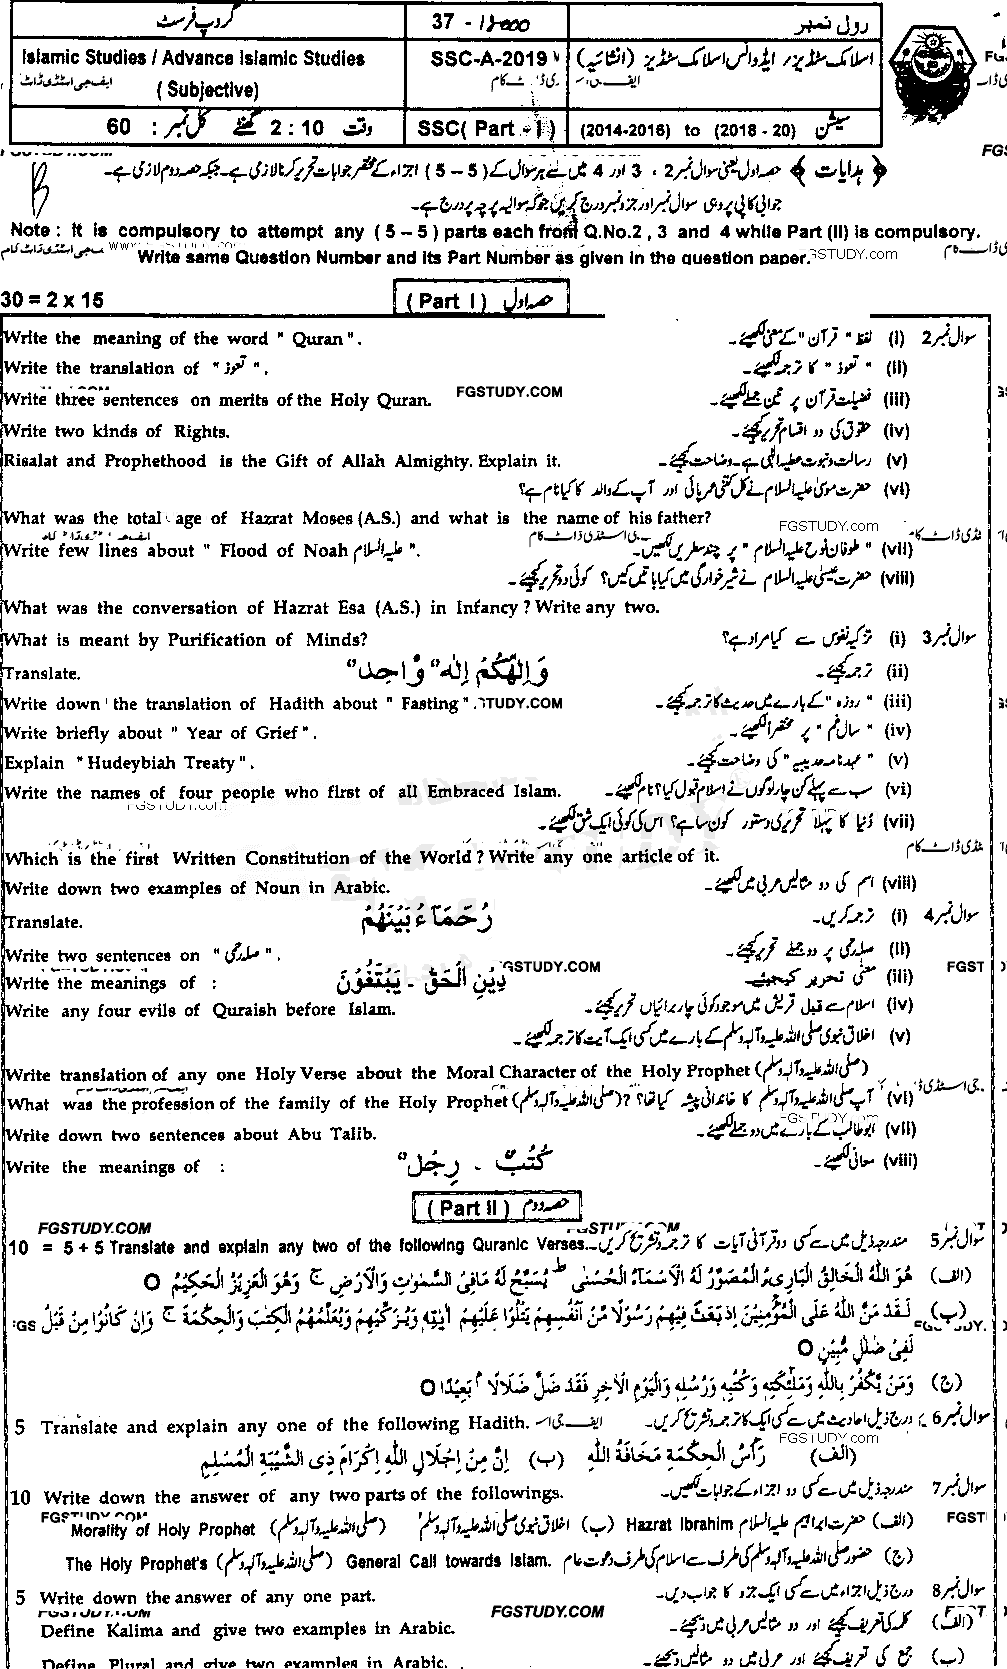 گروپ فرسٹ 37 - 12000 رول نمبر
Islamic Studies / Advance Islamic Studies SSC-A-2019 اسلامک سٹڈیز / ایڈوانس اسلامک سٹڈیز (انشائیہ)
( Subjective)
کل نمبر : 60 وقت 2 : 10 گھنٹے SSC( Part - I ) (2014-2016) to (2018 - 20) سیشن
﴿ ہدایات ﴾ حصہ اول یعنی سوال نمبر 2 ، 3 اور 4 میں سے ہر سوال کے ( 5 – 5 ) اجزاء کے مختصر جوابات تحریر کرنا لازمی ہے۔ جبکہ حصہ دوم لازمی ہے۔
جوابی کاپی پر وہی سوال نمبر اور جز نمبر درج کریں جو کہ سوالیہ پرچہ پر درج ہے۔
Note : It is compulsory to attempt any ( 5 – 5 ) parts each from Q.No.2 , 3 and 4 while Part (II) is compulsory.
Write same Question Number and its Part Number as given in the question paper. FGSTUDY.com
30 = 2 x 15 (Part I ) حصہ اول
Write the meaning of the word " Quran". سوال نمبر 2 (i) لفظ " قرآن " کے معنی لکھیئے۔
Write the translation of " تعوذ ". (ii) " تعوذ " کا ترجمہ لکھیئے۔
Write three sentences on merits of the Holy Quran. FGSTUDY.COM (iii) فضیلت قرآن پر تین جملے لکھیئے۔
Write two kinds of Rights. (iv) حقوق کی دو اقسام تحریر کیجئے۔
Risalat and Prophethood is the Gift of Allah Almighty. Explain it. (v) رسالت و نبوت عطیہ الٰہی ہے۔ وضاحت کیجئے۔
(vi) حضرت موسیٰ علیہ السلام نے کل کتنی عمر پائی اور آپ کے والد کا کیا نام ہے؟
What was the total age of Hazrat Moses (A.S.) and what is the name of his father? FGSTUDY.com
Write few lines about " Flood of Noah علیہ السلام ". (vii) " طوفان نوح علیہ السلام " پر چند سطریں لکھیں۔
(viii) حضرت عیسیٰ علیہ السلام نے شیر خوارگی میں کیا باتیں کیں؟ کوئی دو تحریر کیجئے۔
What was the conversation of Hazrat Esa (A.S.) in Infancy ? Write any two.
What is meant by Purification of Minds? سوال نمبر 3 (i) تزکیہ نفوس سے کیا مراد ہے؟
Translate. وَاِلٰهُكُمْ اِلٰهٌ وَّاحِدٌ (ii) ترجمہ کیجئے۔
Write down the translation of Hadith about " Fasting ". (iii) " روزہ " کے بارے میں حدیث کا ترجمہ لکھیئے۔
Write briefly about " Year of Grief ". (iv) " سال غم " پر مختصراً لکھیئے۔
Explain " Hudeybiah Treaty ". (v) " عہد نامہ حدیبیہ " کی وضاحت کیجئے۔
Write the names of four people who first of all Embraced Islam. (vi) سب سے پہلے کن چار لوگوں نے اسلام قبول کیا؟ نام لکھیئے۔
(vii) دُنیا کا پہلا تحریری دستور کون سا ہے؟ اس کی کوئی ایک شق لکھیئے۔
Which is the first Written Constitution of the World ? Write any one article of it.
Write down two examples of Noun in Arabic. (viii) اسم کی دو مثالیں عربی میں لکھیئے۔
Translate. رُحَمَآءُ بَيْنَهُمْ سوال نمبر 4 (i) ترجمہ کریں۔
Write two sentences on " صلہ رحمی ". (ii) صلہ رحمی پر دو جملے تحریر کیجئے۔
Write the meanings of : دِيْنِ الْحَقِّ ۔ يَبْتَغُوْنَ (iii) معنی تحریر کیجیئے۔
Write any four evils of Quraish before Islam. (iv) اسلام سے قبل قریش میں موجود کوئی چار برائیاں تحریر کیجئے۔
(v) اخلاق نبوی صلی اللہ علیہ وآلہ وسلم کے بارے میں کسی ایک آیت کا ترجمہ لکھیئے۔
Write translation of any one Holy Verse about the Moral Character of the Holy Prophet (صلی اللہ علیہ وآلہ وسلم)
What was the profession of the family of the Holy Prophet (صلی اللہ علیہ وآلہ وسلم)? (vi) آپ صلی اللہ علیہ وآلہ وسلم کا خاندانی پیشہ کیا تھا؟
Write down two sentences about Abu Talib. (vii) ابو طالب کے بارے میں دو جملے لکھیئے۔
Write the meanings of : كُتُبٌ ۔ رِجْلٌ (viii) معانی لکھیئے۔
(Part II ) حصہ دوم
FGSTUDY.COM
10 = 5 + 5 Translate and explain any two of the following Quranic Verses. سوال نمبر 5 مندرجہ ذیل میں سے کسی دو قرآنی آیات کا ترجمہ و تشریح کریں۔
(الف) هُوَ اللّٰهُ الْخَالِقُ الْبَارِئُ الْمُصَوِّرُ لَهُ الْاَسْمَآءُ الْحُسْنٰى ط يُسَبِّحُ لَهٗ مَا فِى السَّمٰوٰتِ وَالْاَرْضِ ج وَهُوَ الْعَزِيْزُ الْحَكِيْمُ ○
(ب) لَقَدْ مَنَّ اللّٰهُ عَلَى الْمُؤْمِنِيْنَ اِذْ بَعَثَ فِيْهِمْ رَسُوْلًا مِّنْ اَنْفُسِهِمْ يَتْلُوْا عَلَيْهِمْ اٰيٰتِهٖ وَيُزَكِّيْهِمْ وَيُعَلِّمُهُمُ الْكِتٰبَ وَالْحِكْمَةَ ج وَاِنْ كَانُوْا مِنْ قَبْلُ
لَفِىْ ضَلٰلٍ مُّبِيْنٍ ○
(ج) وَمَنْ يَّكْفُرْ بِاللّٰهِ وَمَلٰٓئِكَتِهٖ وَكُتُبِهٖ وَرُسُلِهٖ وَالْيَوْمِ الْاٰخِرِ فَقَدْ ضَلَّ ضَلٰلًا بَعِيْدًا ○
5 Translate and explain any one of the following Hadith. سوال نمبر 6 درج ذیل احادیث میں سے کسی ایک کا ترجمہ و تشریح کریں۔
(الف) رَأْسُ الْحِكْمَةِ مَخَافَةُ اللّٰهِ (ب) اِنَّ مِنْ اِجْلَالِ اللّٰهِ اِكْرَامَ ذِى الشَّيْبَةِ الْمُسْلِمِ
10 Write down the answer of any two parts of the followings. سوال نمبر 7 مندرجہ ذیل میں سے کسی دو اجزاء کے جوابات لکھیں۔
Morality of Holy Prophet (صلی اللہ علیہ وآلہ وسلم) (ب) اخلاق نبوی صلی اللہ علیہ وآلہ وسلم Hazrat Ibrahim (الف) حضرت ابراہیم علیہ السلام
The Holy Prophet's (صلی اللہ علیہ وآلہ وسلم) General Call towards Islam. (ج) حضور صلی اللہ علیہ وآلہ وسلم کی طرف سے اسلام کی طرف دعوت عام
5 Write down the answer of any one part. سوال نمبر 8 درج ذیل اجزاء میں سے کسی ایک جزو کا جواب دیں۔
FGSTUDY.COM
Define Kalima and give two examples in Arabic. (الف) کلمہ کی تعریف کیجئے اور دو مثالیں عربی میں دیجئے۔
Define Plural and give two examples in Arabic. (ب) جمع کی تعریف کیجئے اور عربی میں دو مثالیں دیجئے۔